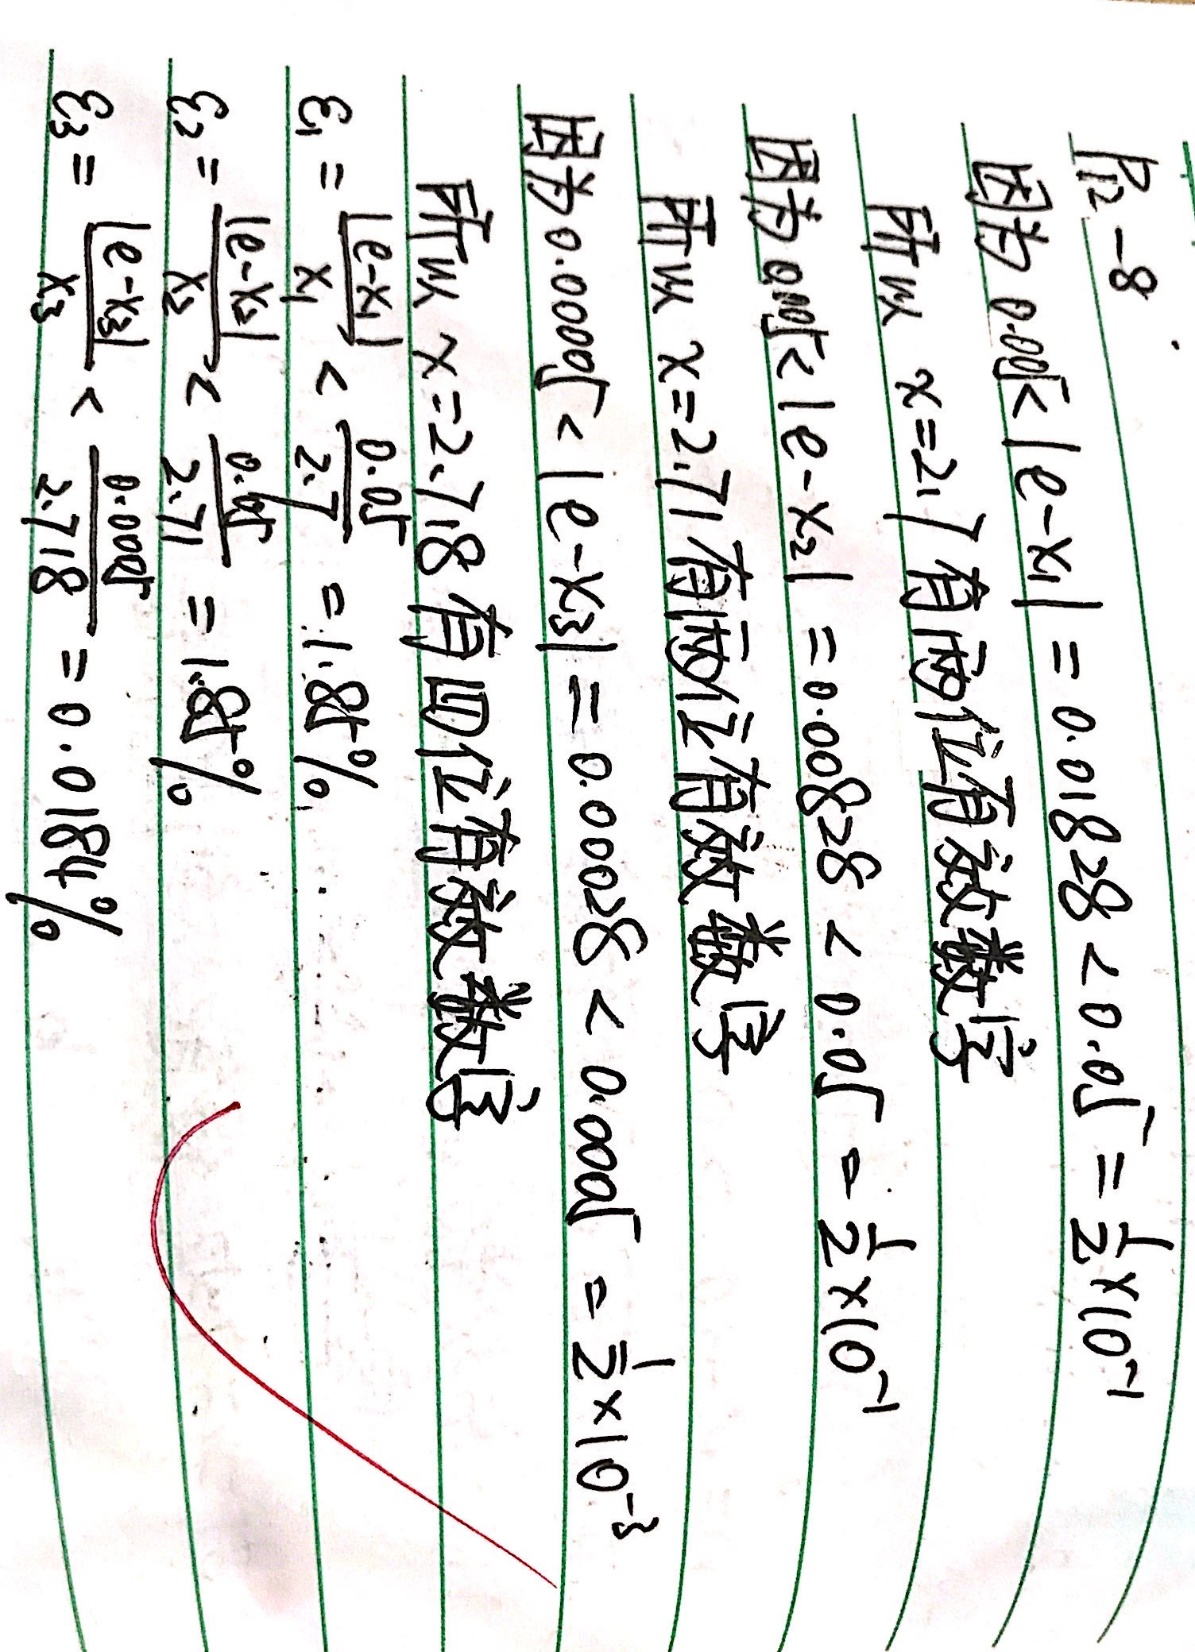 P12-8
因为 0.005<|e-x₁| = 0.01828 < 0.05 = 1/2×10⁻¹
所以 x=2.7有两位有效数字
因为 0.005<|e-x₂| = 0.00828 < 0.05 = 1/2×10⁻¹
所以 x=2.71有两位有效数字
因为 0.00005 < |e-x₃| = 0.00028 < 0.0005 = 1/2×10⁻³
所以 x=2.718有四位有效数字
ε₁ = |e-x₁|/x₁ < 0.05/2.7 = 1.85%
ε₂ = |e-x₂|/x₂ < 0.05/2.71 = 1.85%
ε₃ = |e-x₃|/x₃ < 0.0005/2.718 = 0.0184%